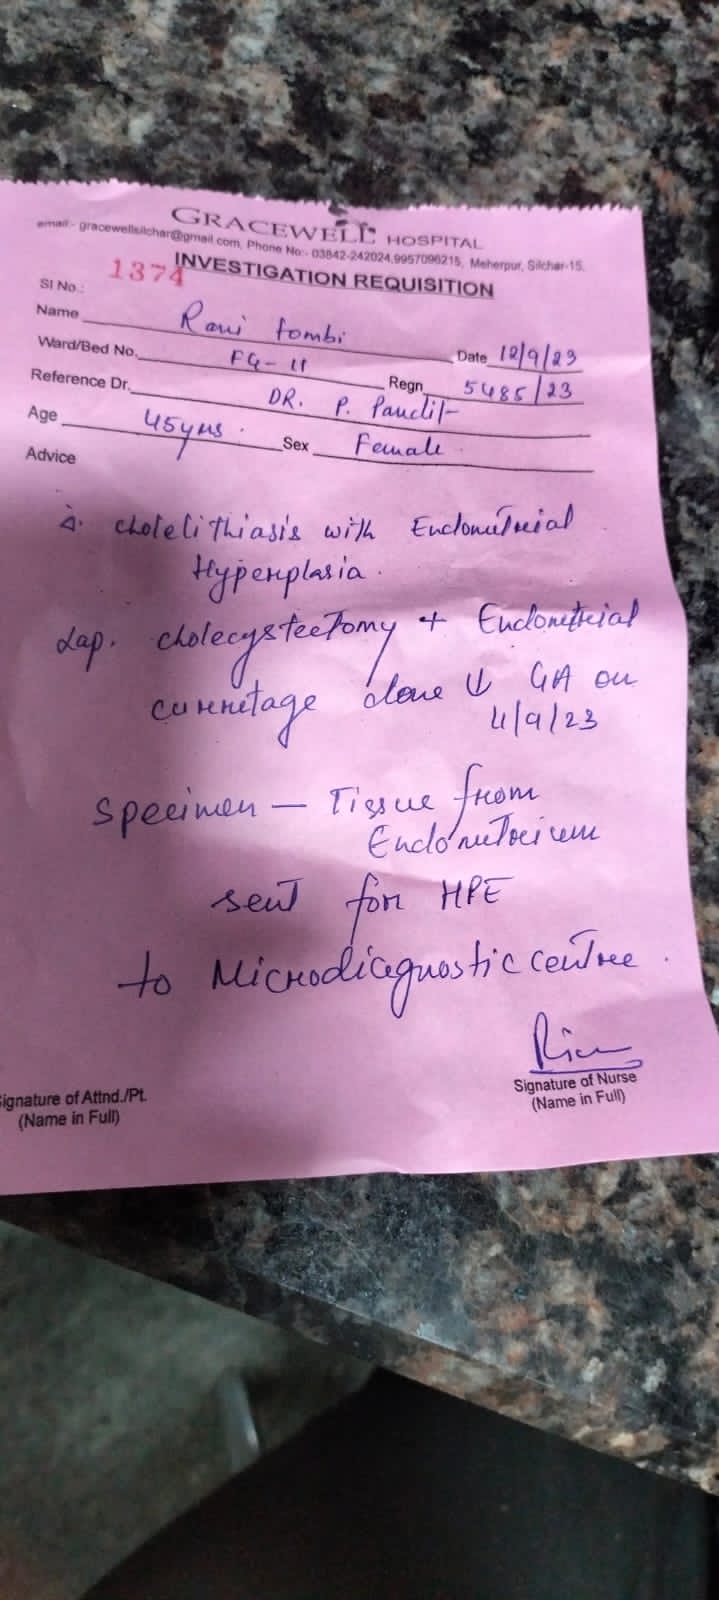 GRACEWELL HOSPITAL
email:- gracewellsilchar@gmail.com, Phone No:- 03842-242024,9957096215, Meherpur, Silchar-15.
1374 INVESTIGATION REQUISITION
Sl No.:
Name Rani Tombi Date 12/9/23
Ward/Bed No. FG-11 Regn 5485/23
Reference Dr. DR. P. Pandit
Age 45yrs. Sex Female
Advice
Δ. cholelithiasis with Endometrial
Hyperplasia.
Lap. cholecystectomy + Endometrial
curretage done ↓ GA on
11/9/23
Specimen — Tissue from
Endometrium
sent for HPE
to Microdiagnostic centre.
Signature of Attnd./Pt.
(Name in Full)
Signature of Nurse
(Name in Full)